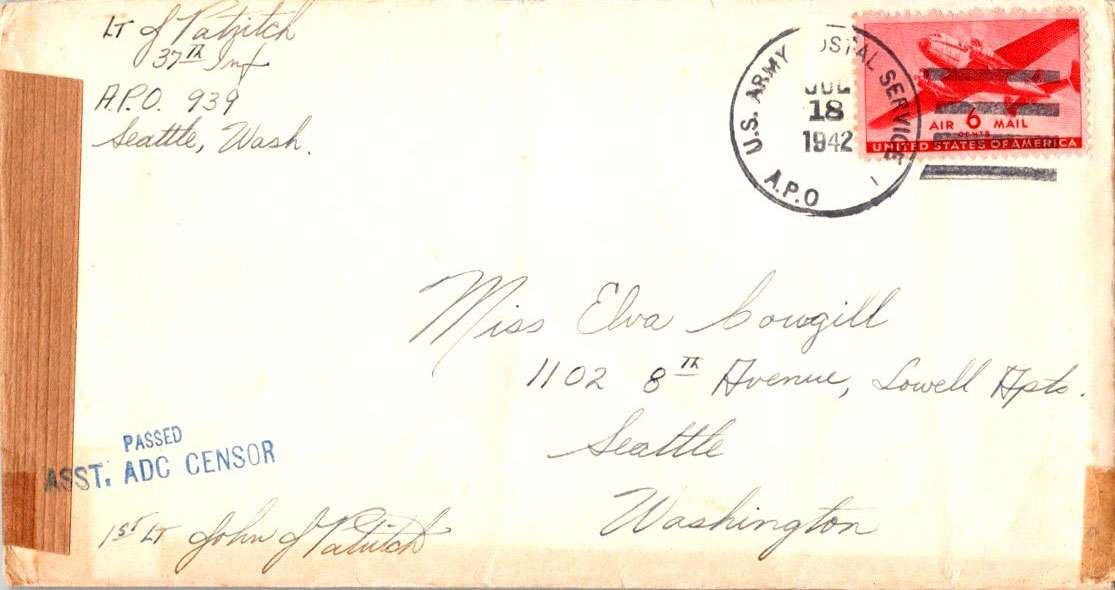 LT J Patzitch
37TH Inf
A.P.O. 939
Seattle, Wash.
U.S. ARMY POSTAL SERVICE
JUL
18
1942
A.P.O
AIR 6 MAIL
CENTS
UNITED STATES OF AMERICA
Miss Elva Cowgill
1102 8TH Avenue, Lowell Apts.
Seattle
Washington
PASSED
ASST. ADC CENSOR
1ST LT John J Patzitch